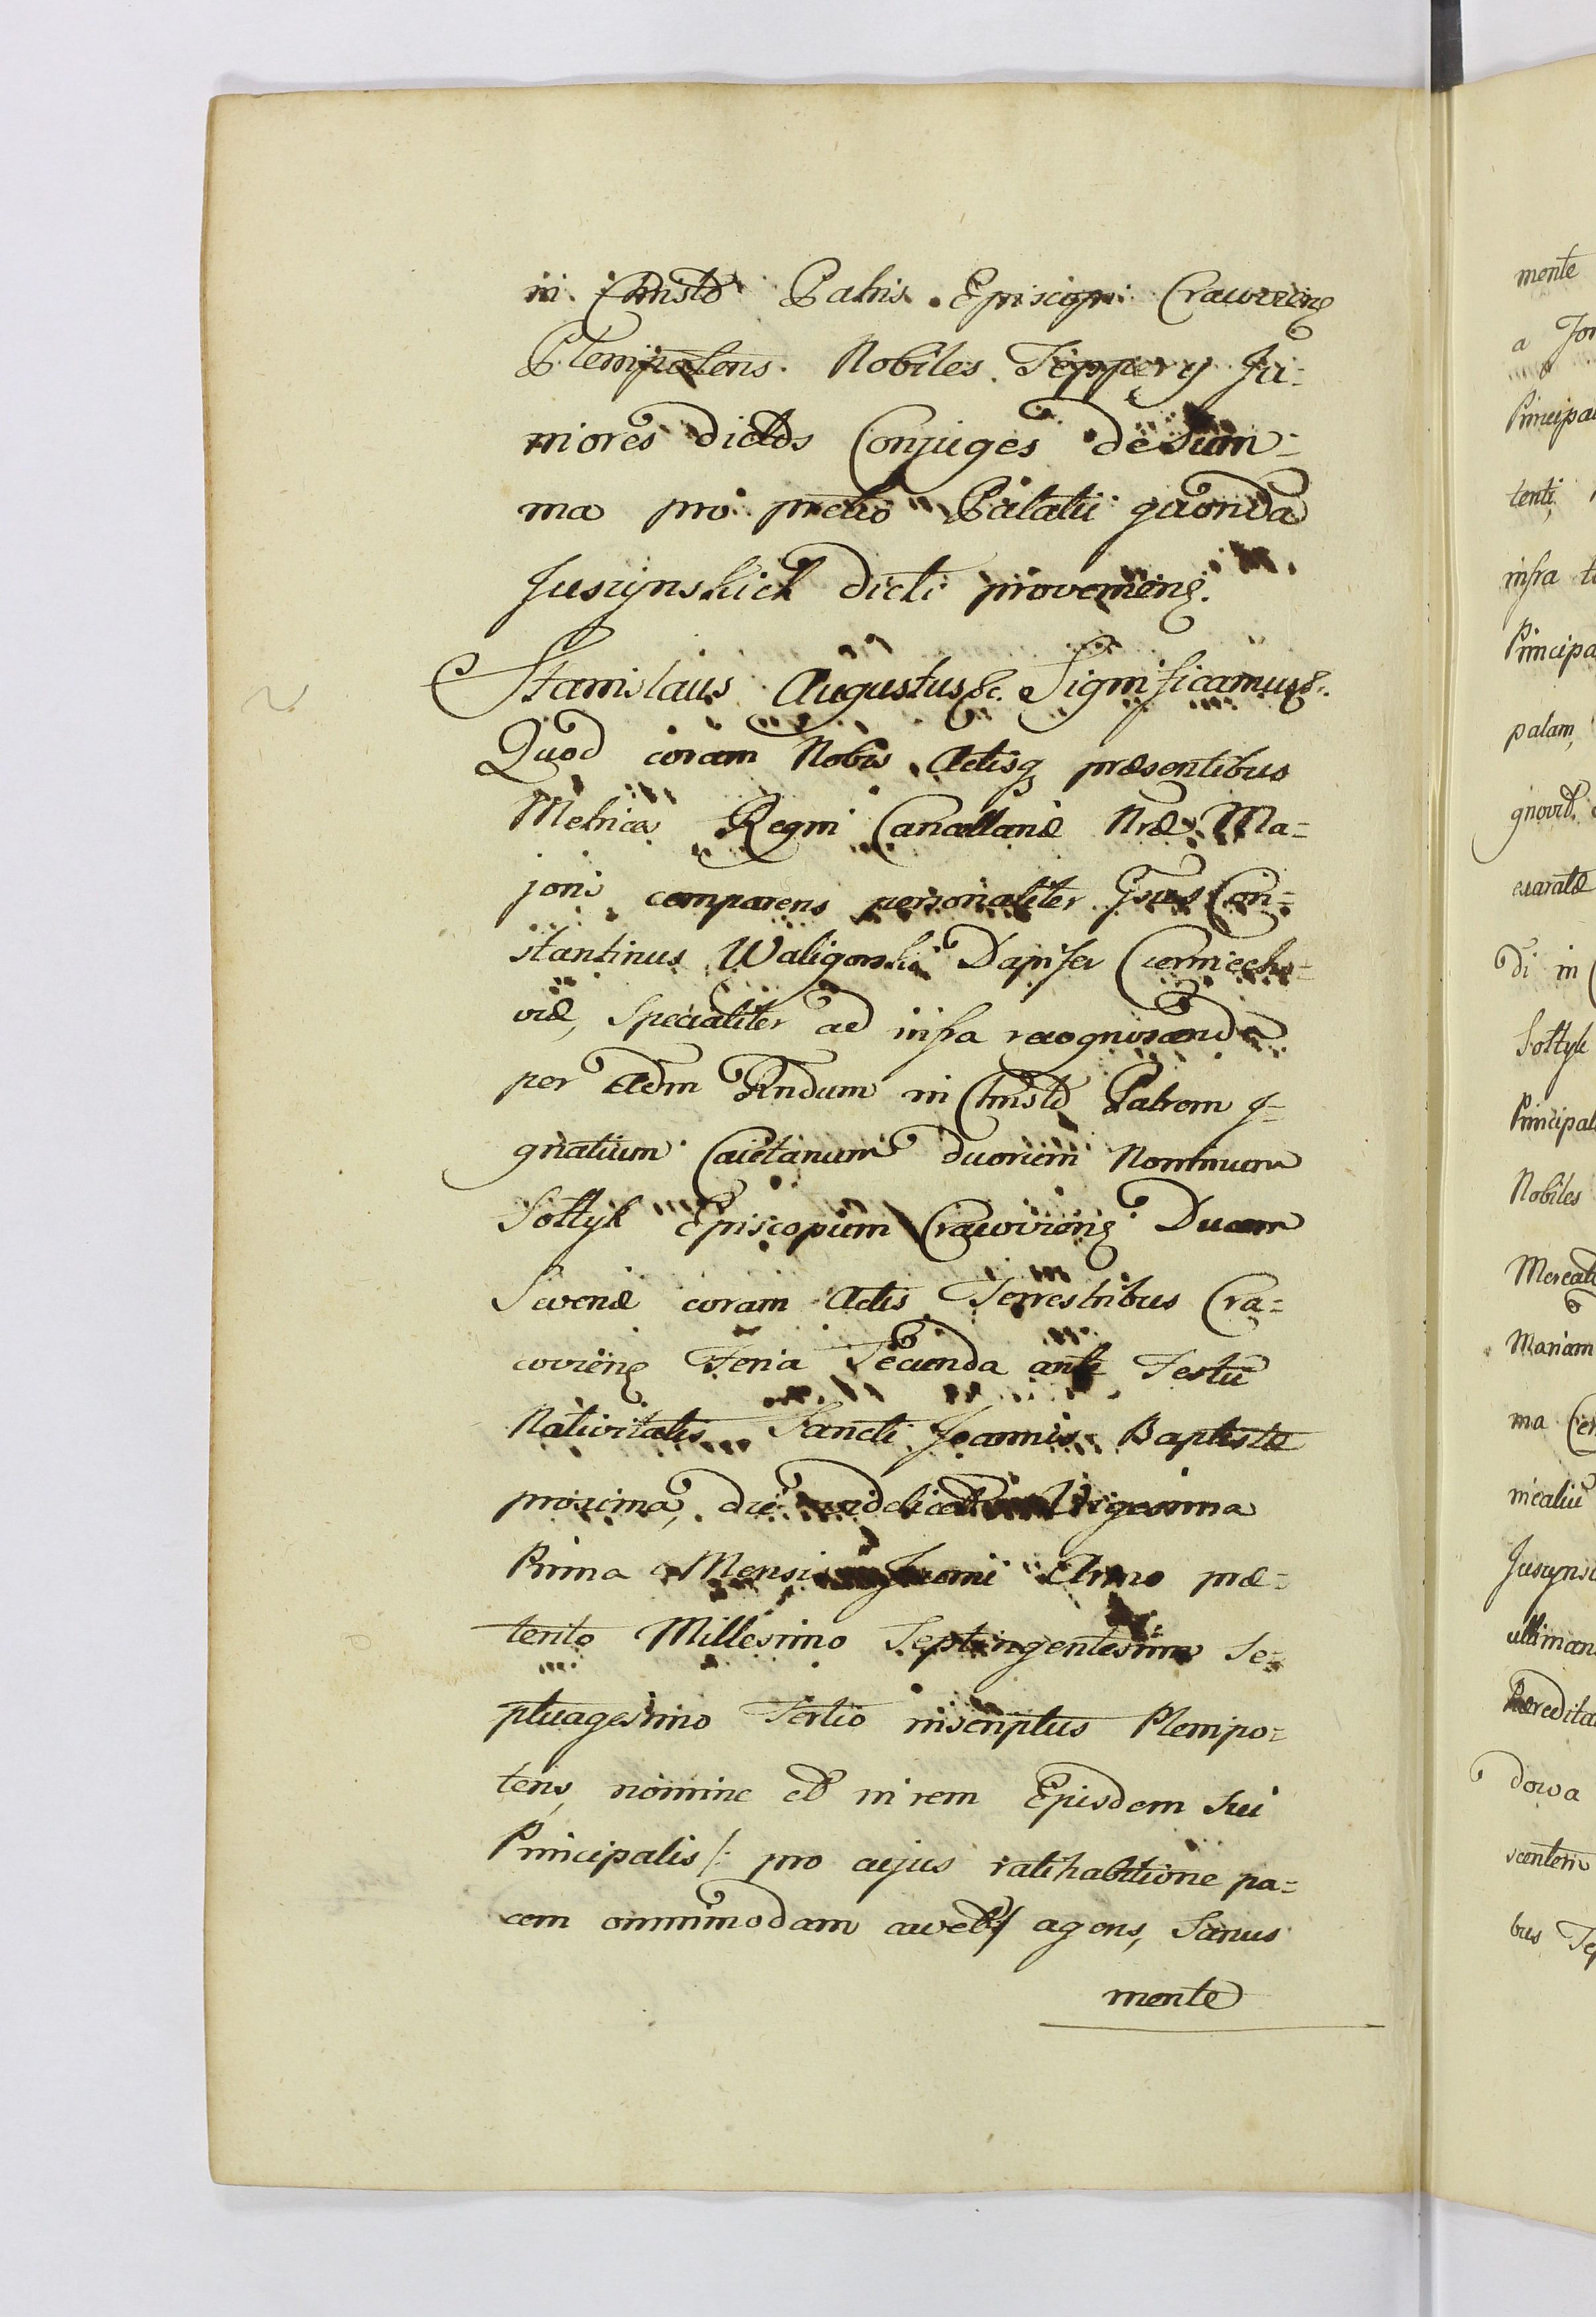 in Christo Patris Episcopi Cracovieng
Plenipotens. Nobiles Teppery Ju=
niores dictos Conjuges de Sum=
ma pro pretio Palatii quonda
Juszynskich dicti proveniens.
Stanislaus Augustus &c. Significamus &c.
Quod coram Nobis Actisq præsentibus
Metrices Regni Cancellariæ Nræ Ma=
joris comparens personaliter Gsus Con=
stantinus Waligorski Dapifer Czerniecho=
viæ, Specialiter ad infra recognoscenda
per Adm Rndum in Christo Patrem I=
gnatium Caietanum duorum Nominum
Sołtyk Episcopum Cracovieng Ducem
Severiæ coram Actis Terrestribus Cra=
covieng Feria Secunda ante Festū
Nativitatis Sancti Joannis Baptistæ
proxima, die videlicet Vigesima
Prima Mensis Junii Anno præ=
terito Millesimo Septingentesimo Se=
ptuagesimo Tertio inscriptus Plenipo=
tens, nomine et in rem Ejusdem Sui
Principalis /: pro cujus ratihabitione pa=
cem omnimodam cavet :/ agens, Sanus
mente
mente
a
Principal
tenti,
infra
Principa
palam,
gnovit
exaratæ
di in
Sołtyk
Principal
Nobiles
Mercat
Mariam
ma
nicaliū
Juszyns
ultiman
Hæredita
dowa
scenten
bus